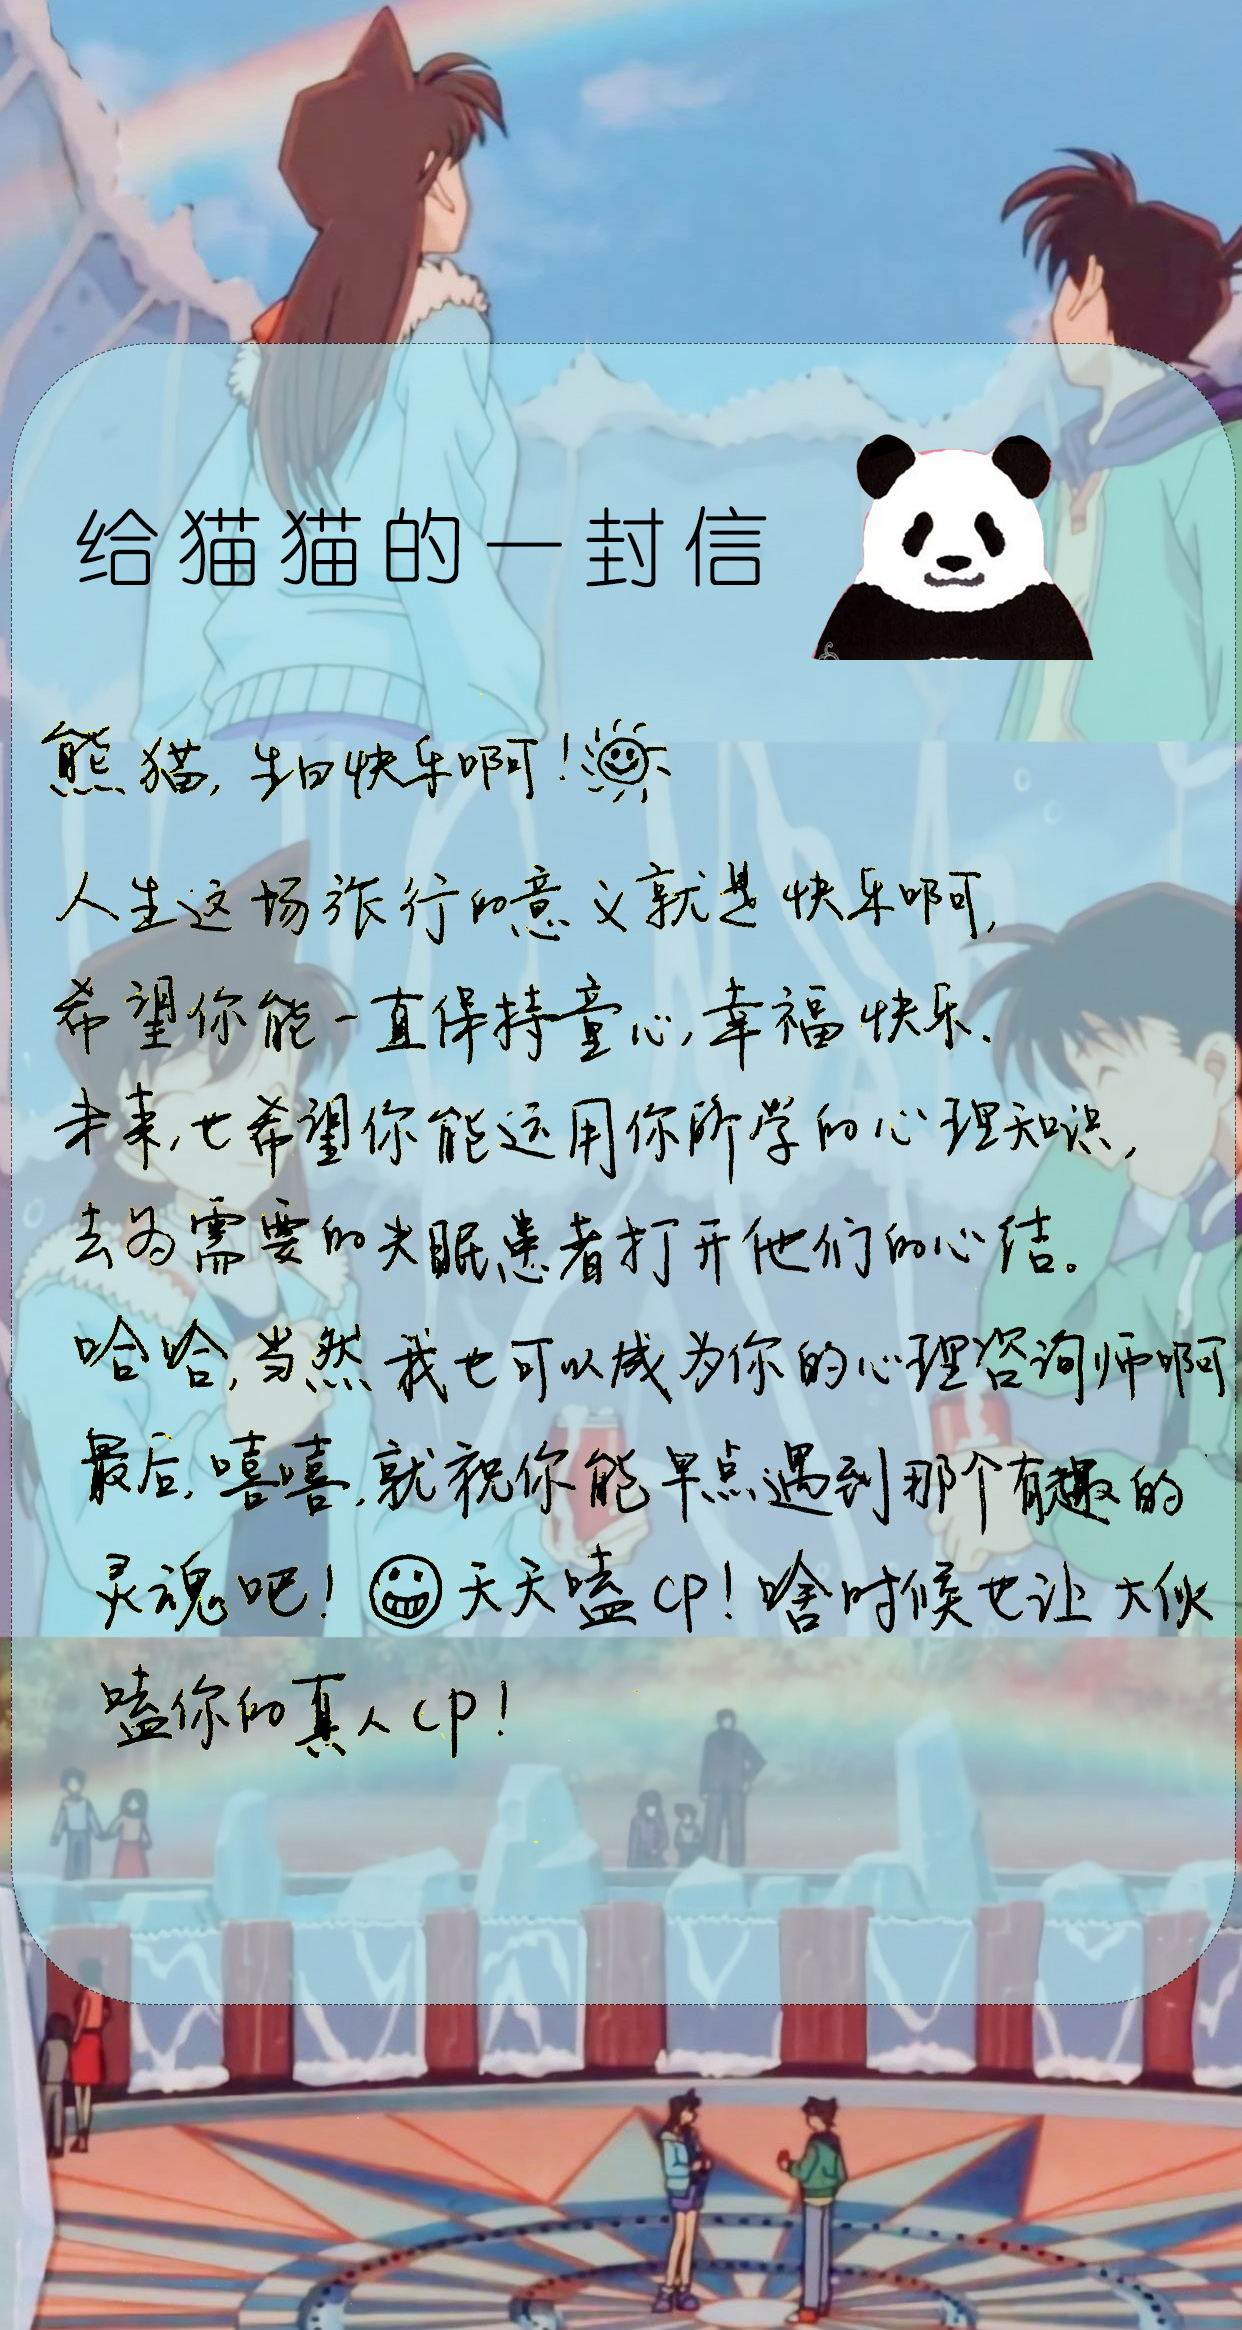 给猫猫的一封信
熊猫,生日快乐啊!
人生这场旅行的意义就是快乐啊,
希望你能一直保持童心,幸福快乐.
未来,也希望你能运用你所学的心理知识,
去为需要的失眠患者打开他们的心结。
哈哈,当然我也可以成为你的心理咨询师啊
最后,嘻嘻,就祝你能早点遇到那个有趣的
灵魂吧!天天嗑CP!啥时候也让大伙
嗑你的真人CP!